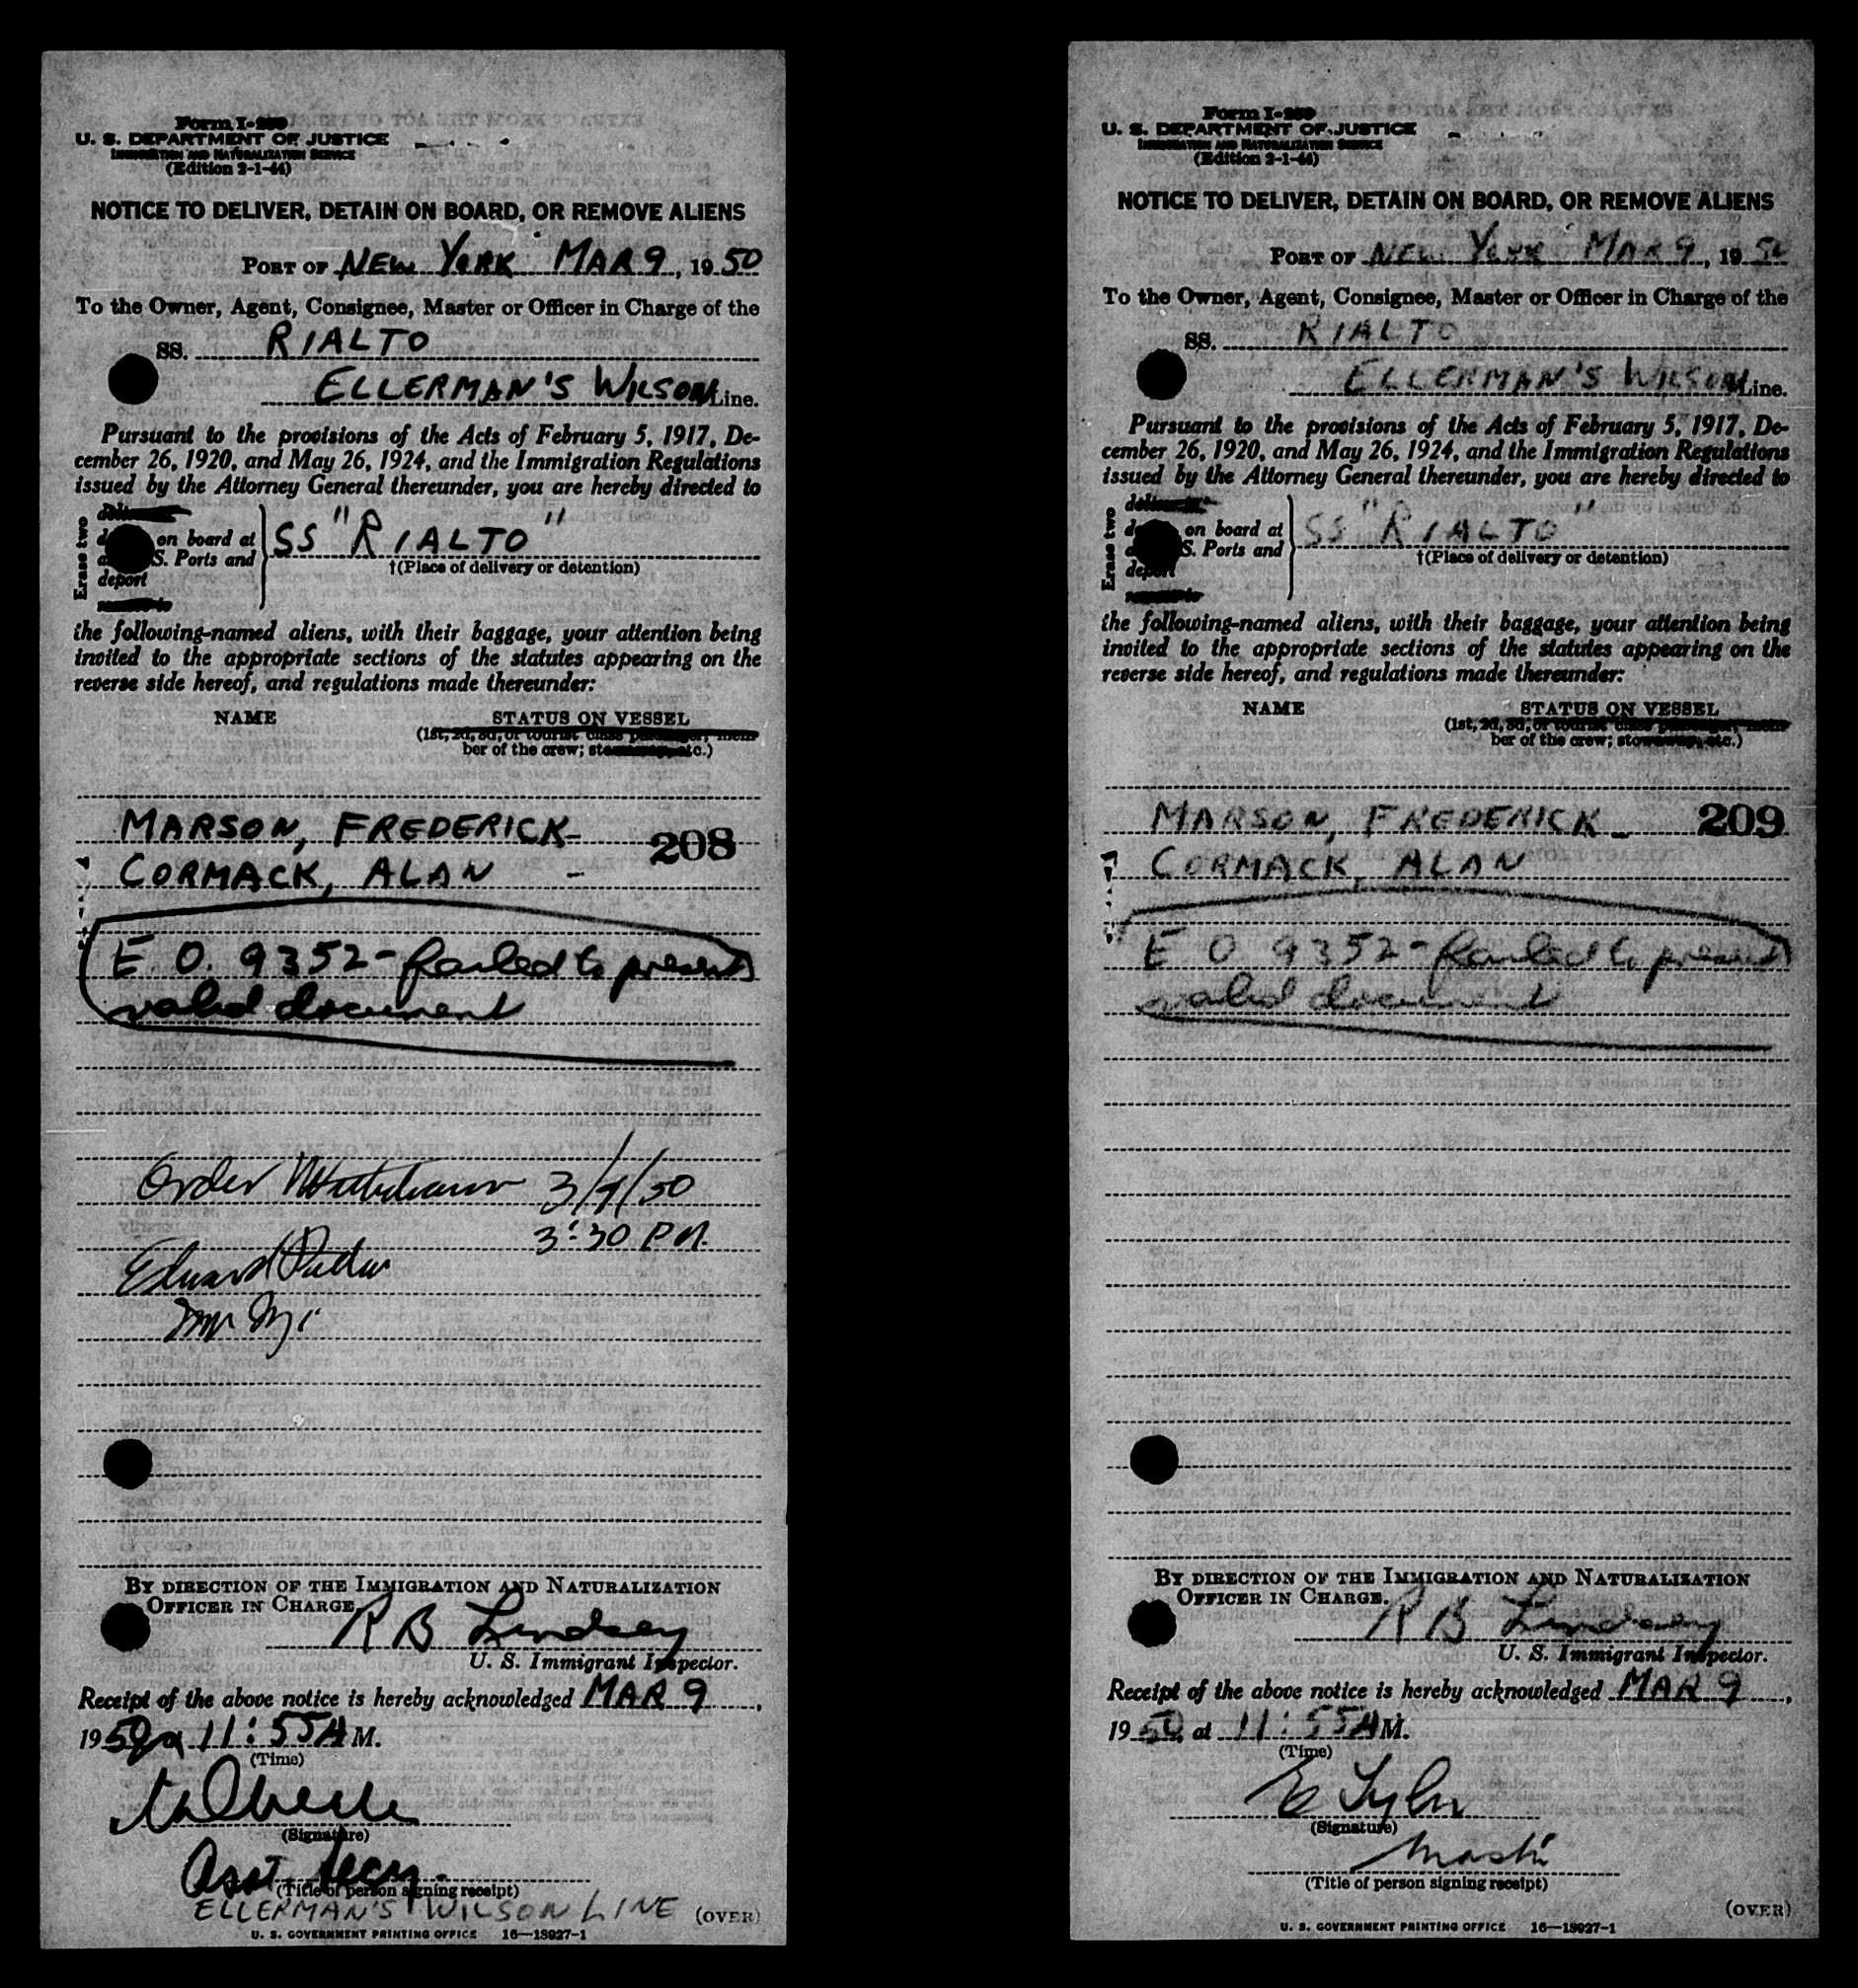 Form I-259
U. S. DEPARTMENT OF JUSTICE
IMMIGRATION AND NATURALIZATION SERVICE
(Edition 2-1-44)
NOTICE TO DELIVER, DETAIN ON BOARD, OR REMOVE ALIENS
PORT OF NEW YORK MAR 9, 1950
To the Owner, Agent, Consignee, Master or Officer in Charge of the
SS. RIALTO
ELLERMAN'S WILSON Line.
Pursuant to the provisions of the Acts of February 5, 1917, De-
cember 26, 1920, and May 26, 1924, and the Immigration Regulations
issued by the Attorney General thereunder, you are hereby directed to
Erase two
on board at
S. Ports and
deport
SS "RIALTO"
†(Place of delivery or detention)
the following-named aliens, with their baggage, your attention being
invited to the appropriate sections of the statutes appearing on the
reverse side hereof, and regulations made thereunder:
NAME STATUS ON VESSEL
(1st, 2d, 3d, or tourist class passenger; mem-
ber of the crew; stowaway, etc.)
MARSON, FREDERICK - 208
CORMACK, ALAN -
E. O. 9352 - failed to present
valid document
Order Withdrawn 3/9/50
3:30 PM.
Edward
BY DIRECTION OF THE IMMIGRATION AND NATURALIZATION
OFFICER IN CHARGE.
R B Lindsey
U. S. Immigrant Inspector.
Receipt of the above notice is hereby acknowledged MAR 9,
1950 at 11:55 A M.
(Time)
(Signature)
Asst. Secy.
(Title of person signing receipt)
ELLERMAN'S WILSON LINE (OVER)
U. S. GOVERNMENT PRINTING OFFICE 16—13927-1
Form I-259
U. S. DEPARTMENT OF JUSTICE
IMMIGRATION AND NATURALIZATION SERVICE
(Edition 2-1-44)
NOTICE TO DELIVER, DETAIN ON BOARD, OR REMOVE ALIENS
PORT OF NEW YORK MAR 9, 1950
To the Owner, Agent, Consignee, Master or Officer in Charge of the
SS. RIALTO
ELLERMAN'S WILSON Line.
Pursuant to the provisions of the Acts of February 5, 1917, De-
cember 26, 1920, and May 26, 1924, and the Immigration Regulations
issued by the Attorney General thereunder, you are hereby directed to
Erase two
on board at
S. Ports and
deport
SS "RIALTO"
†(Place of delivery or detention)
the following-named aliens, with their baggage, your attention being
invited to the appropriate sections of the statutes appearing on the
reverse side hereof, and regulations made thereunder:
NAME STATUS ON VESSEL
(1st, 2d, 3d, or tourist class passenger; mem-
ber of the crew; stowaway, etc.)
MARSON, FREDERICK - 209
CORMACK, ALAN
E O 9352 - failed to present
valid document
BY DIRECTION OF THE IMMIGRATION AND NATURALIZATION
OFFICER IN CHARGE.
R B Lindsey
U. S. Immigrant Inspector.
Receipt of the above notice is hereby acknowledged MAR 9,
1950, at 11:55 A M.
(Time)
E Tyler
(Signature)
Master
(Title of person signing receipt)
(OVER)
U. S. GOVERNMENT PRINTING OFFICE 16—13927-1